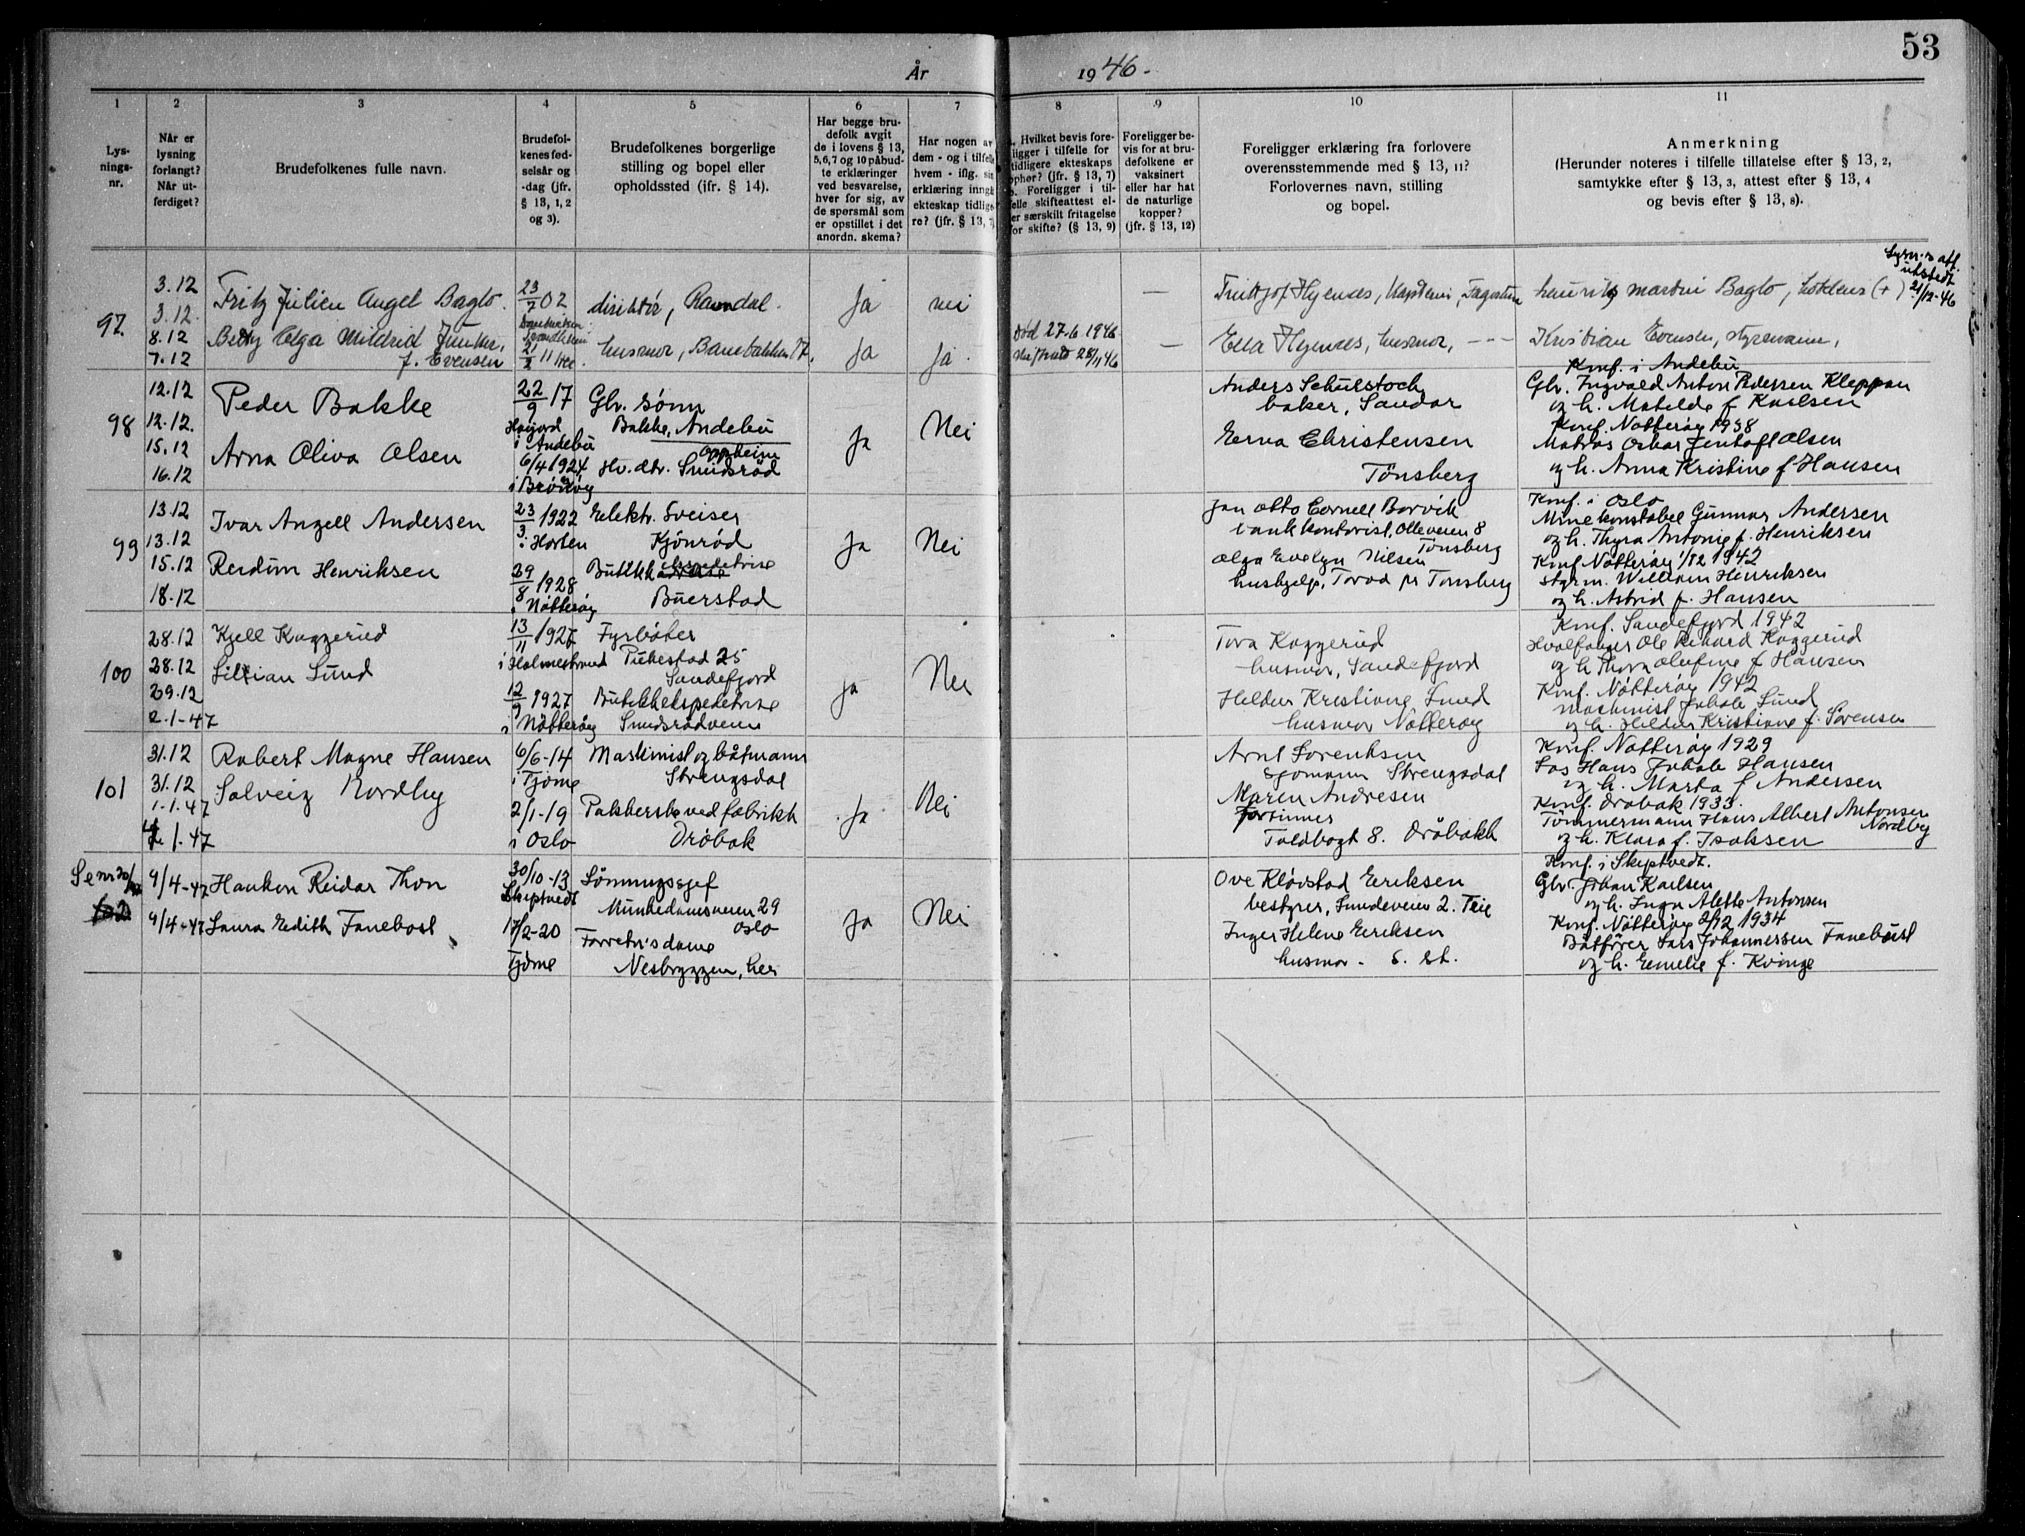 53
År
1946.
1
2
3
4
5
6
7
8
9
10
11
Lys-
nings-
nr.
Når er
lysning
forlangt?
Når ut-
ferdiget?
Brudefolkenes fulle navn.
Brudefol-
kenes fød-
selsår og
-dag (jfr.
§ 13, 1, 2
og 3).
Brudefolkenes borgerlige
stilling og bopel eller
opholdssted (ifr. § 14).
Har begge bru-
defolk avgit
de i lovens § 13,
5,6,7 og 10 påbud-
te erklæringer
ved besvarelse,
hver for sig, av
de spørsmål som
er opstillet i det
anordn. skema?
Har nogen av
dem - og i tilfelle
hvem - iflg. sin
erklæring inngå
ekteskap tidlige
re? (jfr. § 13, 7)
Hvilket bevis fore-
ligger i tilfelle for
tidligere ekteskaps
ophør? (jfr. § 13, 7)
Foreligger i til-
felle skifteattest el-
er særskilt fritagelse
for skifte? (§ 13, 9)
Foreligger be-
vis for at bru-
defolkene er
vaksinert
eller har hat
de naturlige
kopper?
(jfr. § 13, 12)
Foreligger erklæring fra forlovere
overensstemmende med § 13, 11?
Forlovernes navn, stilling
og bopel.
Anmerkning
(Herunder noteres i tilfelle tillatelse efter § 13, 2,
samtykke efter § 13, 3, attest efter § 13, 4
og bevis efter § 13, 8).
97.
3.12
3.12.
8.12
7.12
Fritz Julien Angel Bagto.
Betty Olga Mildrid Junker,
f. Evensen
23/7 02
2/2 11
direktør, Ramdal.
husmor, Banebakken 17.
ja
nei
ja
ja.
død 27.6 1946
28/11 46
—
—
Fridtjof Hjenes, kaptein,
Ella Hjenes, husmor, - - -
henrik martin Bagto, (+)
utstedt
21/12-46
Kristian Evensen, styrmann,
98
12.12
12.12.
15.12
16.12
Peder Bakke
Arna Oliva Olsen
22/9 17
Høijord
i Andebu
6/4 1924
Gbr. sønn
Bakke, Andebu
Oppheim
Hv. dtr. Smidsrød
Ja
Nei
Anders Schulstock
baker, Sandar
Erna Christensen
Tönsberg
Konf. i Andebu
Gbr. Ingvald Anton Pedersen Kleppan
og h. Matilde f. Karlsen
Konf. Nøtterøy 1938
Matros Oskar Jentoft Olsen
og h. Anna Kristine f. Hansen
99
13.12
13.12
15.12
18.12
Ivar Angell Andersen
Reidun Henriksen
23/3 1922
i Horten
29/8 1928
i Nøtterøy
Elektr. Sveiser
Kjønrød
Butikkekspeditrise
Buerstad
Ja
Nei
Jan Otto Cornell Borvik
bankkontorist, Olleveien 8
Tønsberg
Olga Evelyn Nilsen
hushjelp, Torød pr Tønsberg
Konf. i Oslo
Minekonstabel Gunnar Andersen
og h. Thyra Antonie f. Henriksen
Konf Nøtterøy 1/12 1942
styrm. William Henriksen
og h. Astrid f. Hansen
100
28.12
28.12
29.12
2.1-47
Kjell Kaggerud
Lillian Lund
13/11 1927
i Holmestrand
12/9 1927
i Nøtterøy
Fyrbøter
Pukestad 25
Sandefjord
Butikkekspeditrise
Smidsrødveien
ja
Nei
Tora Kaggerud
husmor, Sandefjord
Heldur Kristiane Lund
husmor Nøtterøy
Konf. Sandefjord 1942
Hvalfanger Ole Rikard Kaggerud
og h Thora Olufine f Hansen
Konf. Nøtterøy 1942
Maskinist Jakob Lund
og h. Heldur Kristiane f. Sørensen
101
31.12
31.12
1.1.47
2.1.47
Robert Magne Hansen
Solveig Nordby
6/6-14
i Tjøme
2/1-19
i Oslo
Maskinist og båtmann
Strengsdal
Pakkerske ved fabrikk
Drøbak
Ja
Nei
Arnt Sørensen
sjømann Strengsdal
Maren Andresen
Toldbogt 8. Drøbakk
Konf. Nøtterøy 1929
Los Hans Jakob Hansen
og h. Marta f Andersen
Konf. Drøbak 1933.
Tømmermann Hans Albert Antonsen
Nordby
og h. Klara f. Isaksen
Se nr 20/47
102
9/4-47
9/4-47
Haakon Reidar Thon
Laura Edith Fanebost
30/10-13
Skiptvedt
17/2-20
Tjøme
Lønningssjef
Munkedamsveien 29
Oslo
Forretn's dame
Nesbryggen, her
Ja
Nei
Ove Kløvstad Eriksen
bestyrer, Sundeveien 2. Teie
Inger Helene Eriksen
husmor - s. st.
Konf. i Skiptvedt.
Gbr. Johan Karlsen
og h. Inga Alette Antonsen
Konf. Nøtterøy 2/12 1934
Båtfører Lars Johannessen Fanebust
og h. Emelie f. Kvinge